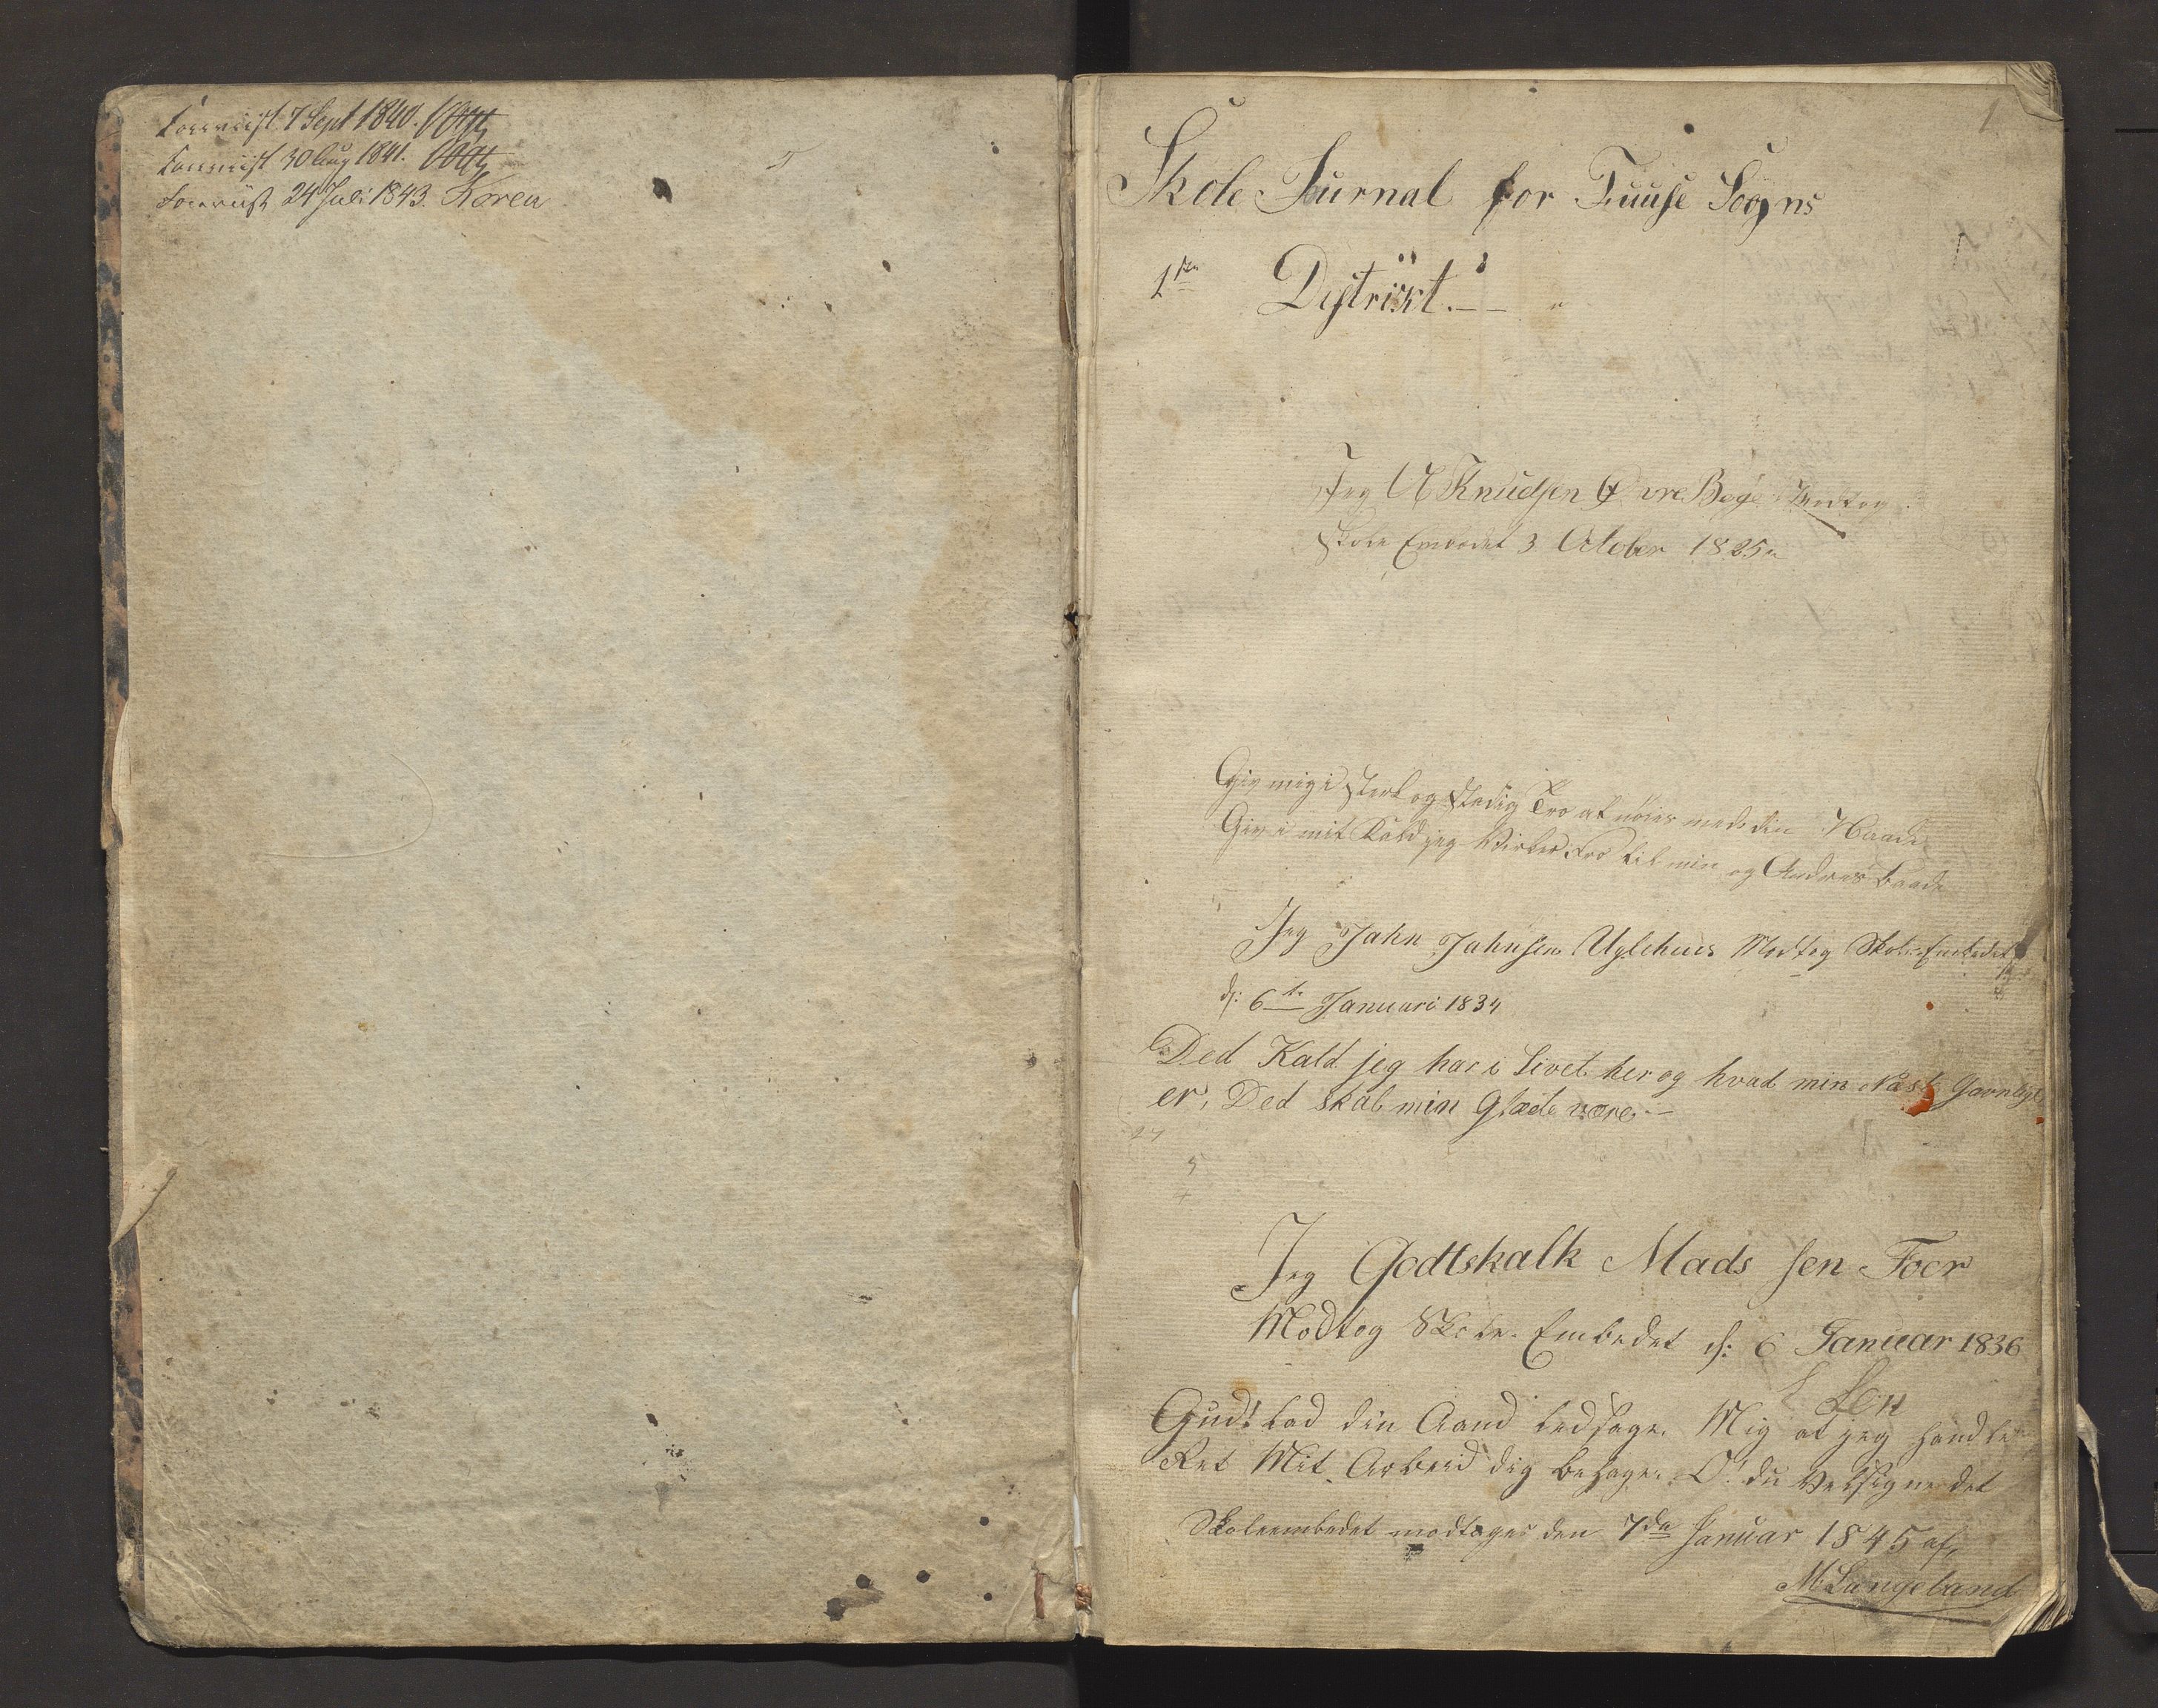 Foreviist 7 Sept 1840. Vogt
Foreviist 30 Aug 1841. Vogt
Foreviist 24 Juli 1843. Koren
1
Skole Jurnal for Fuuse Sogns
1ste Distrikt.
Jeg A Knudsen Øvre Bøge Modtog
Skole Embedet 3 October 1825
Giv mig i sterk og stadig Tro at nöies med din Naade
Giv i mit Kald jeg Virker tro til min og Andres baade
Jeg Jahn Jahnsen Uglehuus Modtog Skole-Embedet
d: 6te Januari 1834
Ded Kald jeg har i Livet her og hvad min Næste Gavnligt
er, Ded skal min Glæde være.
24
Jeg Godtskalk Mads sen Foer
Modtog Skole-Embedet d: 6 Januar 1836
Gud! lad din Aand ledsage. Mig at jeg handler
Ret Mit Arbeid dig behage. O! du Velsigne det
Skoleembedet modtages den 7de Januar 1845 af,
M. Langeland